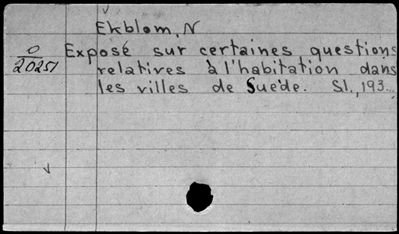 Ekblom, N
O
20251
Exposé sur certaines questions
relatives à l'habitation dans
les villes de Suède. Sl., 193...